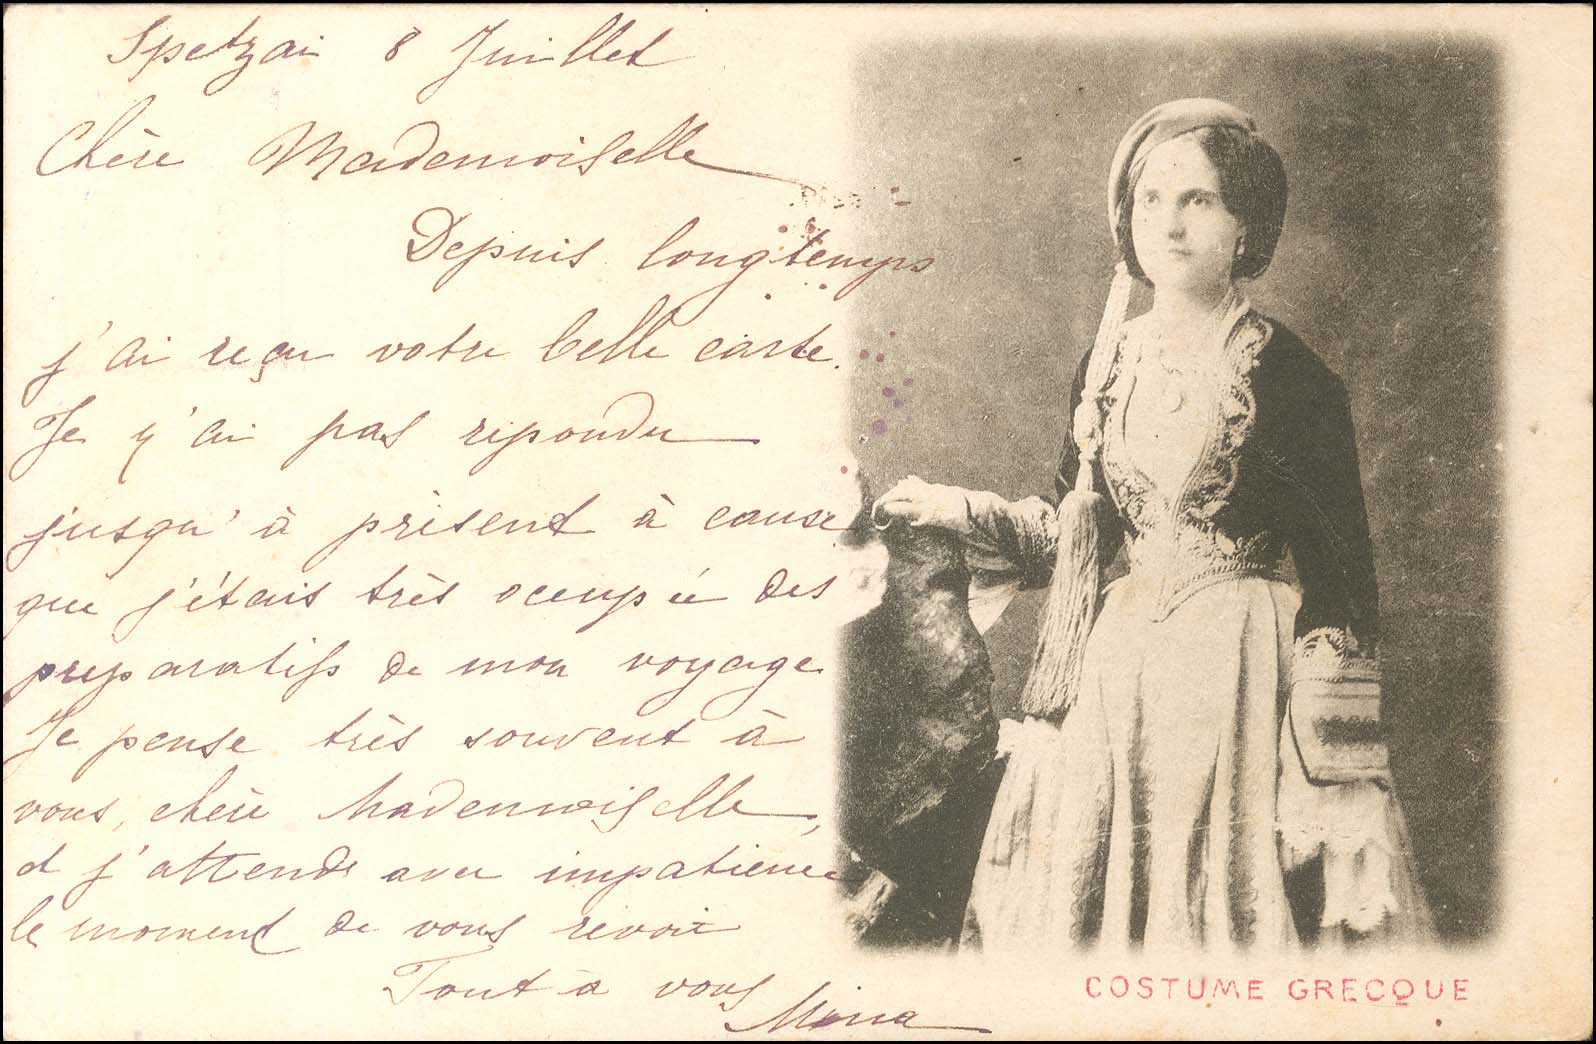 Spetzai 8 Juillet
Chère Mademoiselle
Depuis longtemps
j'ai reçu votre belle carte.
Je y'ai pas repondu
jusqu'à présent à cause
que j'étais très ocupée des
preparatifs de mon voyage
Je pense très souvent à
vous, chère Mademoiselle,
et j'attends avec impatience
le moment de vous revoir
Tout à vous
Mina
COSTUME GRECQUE